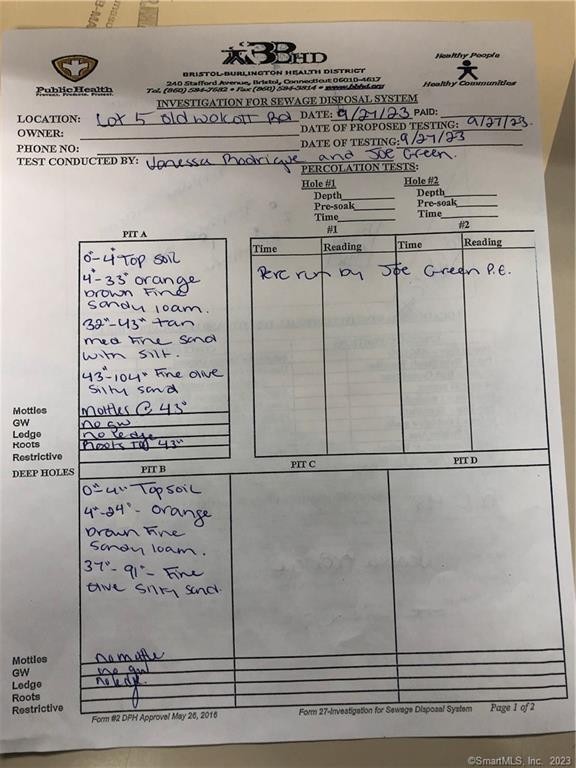 BBHD
Healthy People
BRISTOL-BURLINGTON HEALTH DISTRICT
240 Stafford Avenue, Bristol, Connecticut 06010-4617
PublicHealth
Prevent. Promote. Protect.
Tel. (860) 584-7682 • Fax (860) 584-3814 • www.bbhd.org
Healthy Communities
INVESTIGATION FOR SEWAGE DISPOSAL SYSTEM
LOCATION: Lot 5 Old Wolcott Rd DATE: 9/27/23 PAID:
OWNER: DATE OF PROPOSED TESTING: 9/27/23.
PHONE NO: DATE OF TESTING: 9/27/23
TEST CONDUCTED BY: Vanessa Rodrigue and Joe Green.
PERCOLATION TESTS:
Hole #1 Hole #2
Depth Depth
Pre-soak Pre-soak
Time Time
#1 #2
PIT A
Time Reading Time Reading
Perc run by Joe Green P.E.
0"-4" Top soil
4"-33" orange
brown Fine
sandy loam.
32"-43" tan
med Fine sand
with silt.
43"-104" Fine olive
silty sand
Mottles Mottles @ 43"
GW no gw
Ledge no ledge
Roots Roots to 43"
Restrictive
DEEP HOLES PIT B PIT C PIT D
0"-4" Topsoil
4"-24" - orange
brown Fine
Sandy loam.
37"-91" - Fine
olive silty sand.
Mottles no mottle
GW no gw
Ledge no ledge.
Roots
Restrictive
Form #2 DPH Approval May 26, 2016
Form 27-Investigation for Sewage Disposal System Page 1 of 2
©SmartMLS, Inc. 2023